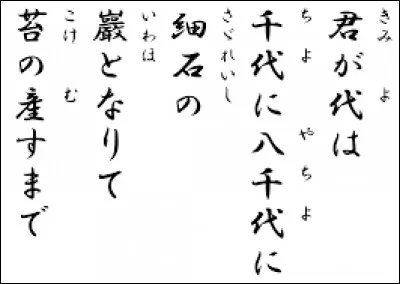 きみ　よ
君が代は
ちよ　やちよ
千代に八千代に
さゞれいし
細石の
いわほ
巖となりて
こけ　む
苔の産すまで